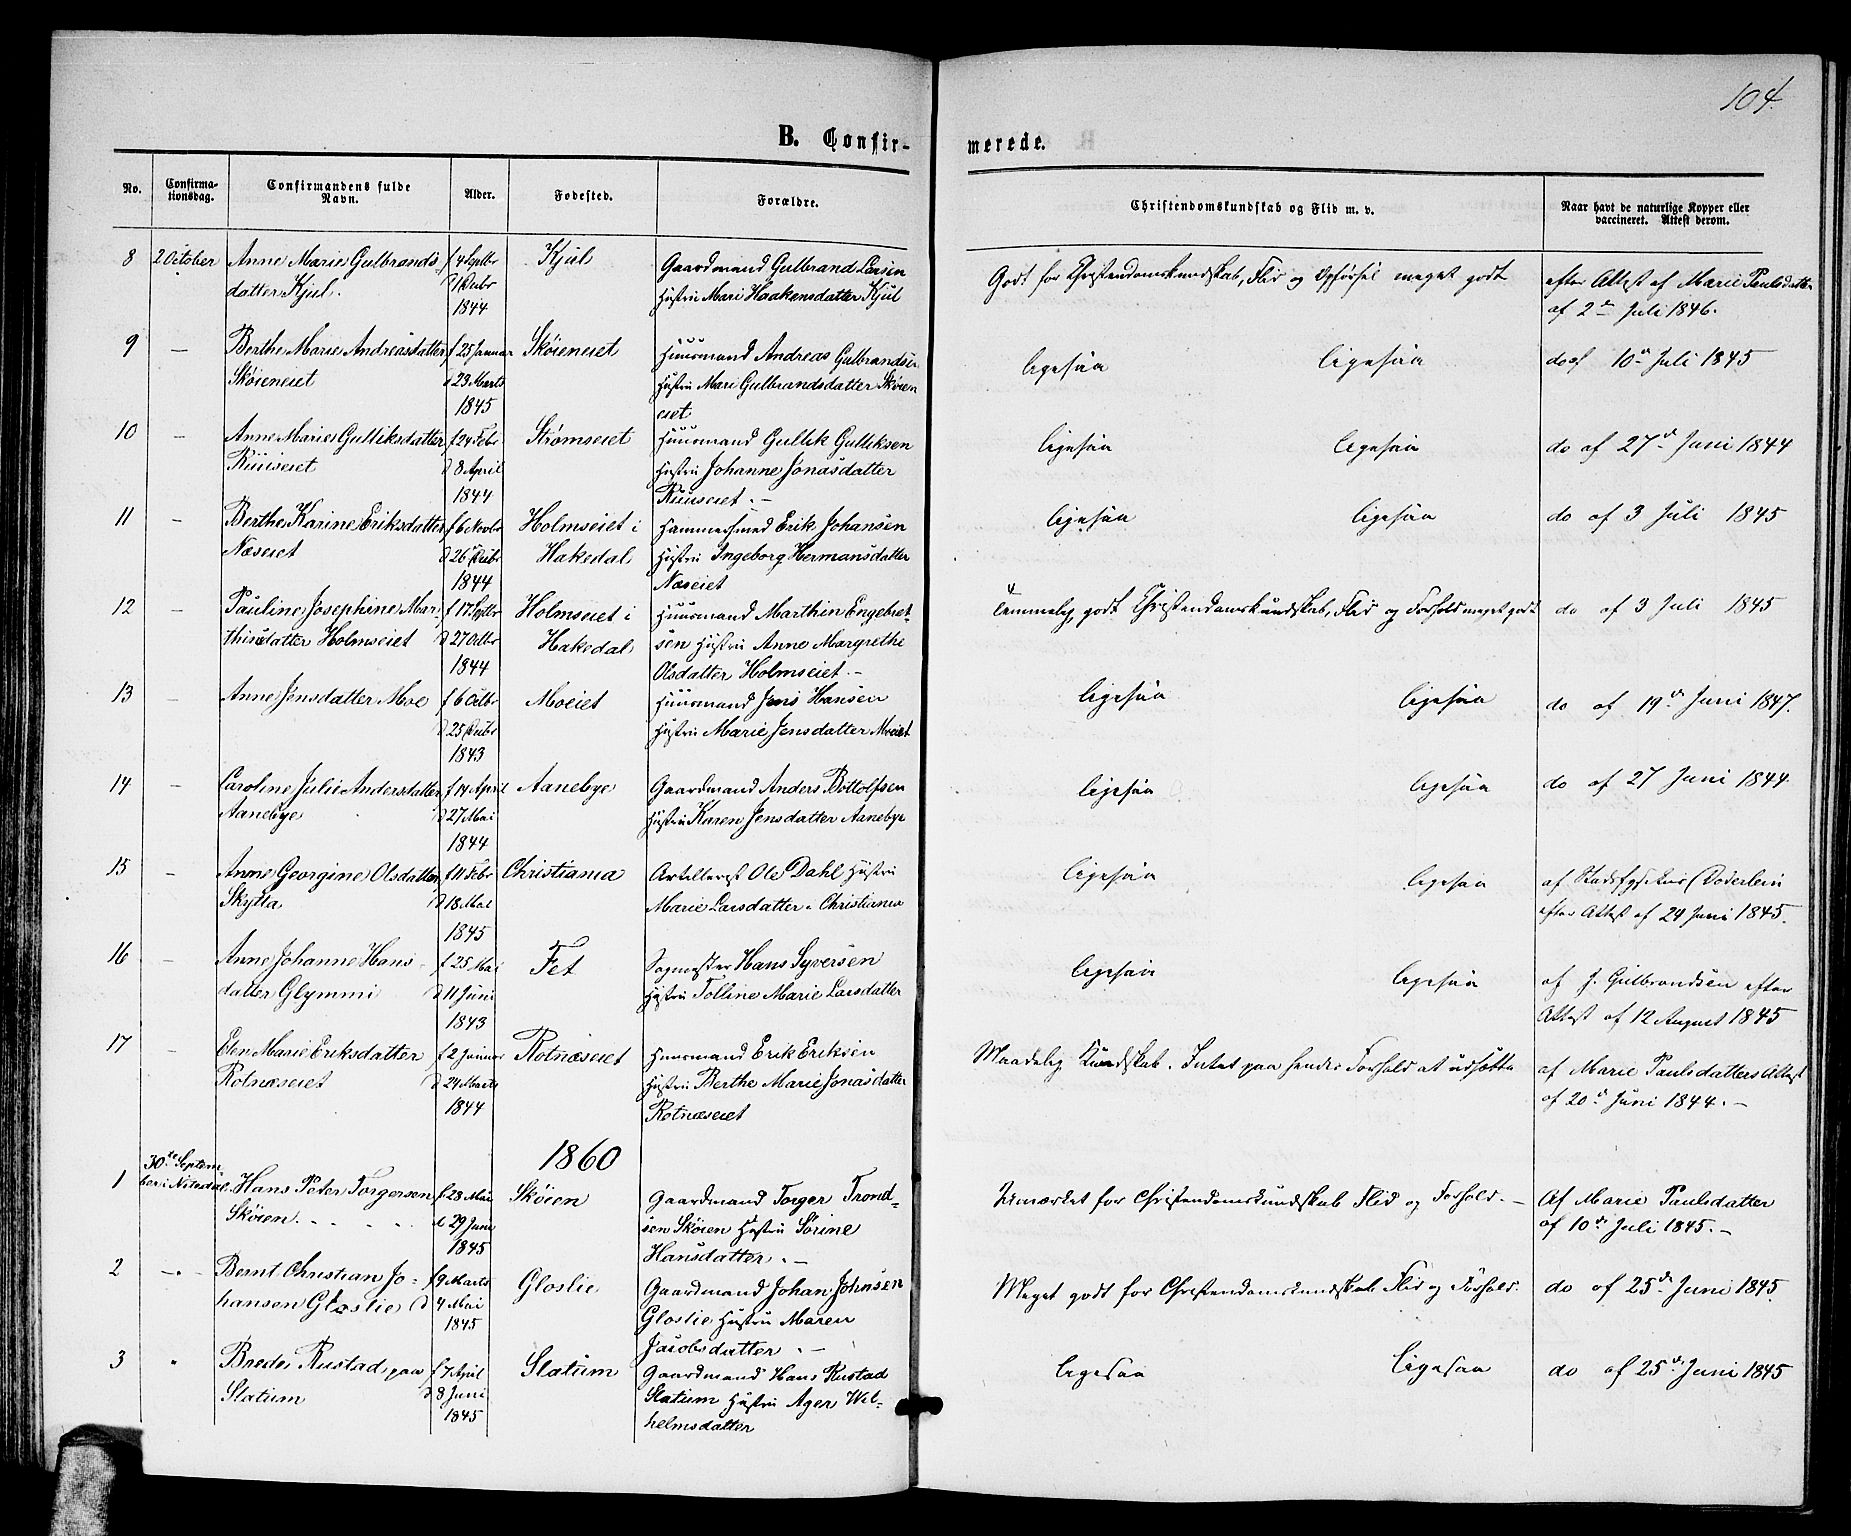 104.
B. Confir-
merede.
No.
Confirma-
tionsdag.
Confirmandens fulde
Navn.
Alder.
Fødested.
Forældre.
Christendomskundskab og Flid m. v.
Naar havt de naturlige Kopper eller
vaccineret. Attest derom.
8 2 October Anne Marie Gulbrands- f 4 Septbr Kjul Gaardmand Gulbrand Larsen Godt for Christendomskundskab, Flid og Opførsel meget godt efter Attest af Marie Paulsdatter
datter Kjul. d 1 Decbr Hustru Mari Haakensdatter Kjul af 2den Juli 1846.
1844
9 — Berthe Marie Andreasdatter f 25 Januar Skøieneiet Huusmand Andreas Gulbrandsen ligesaa ligesaa do af 10de Juli 1845
Skøieneiet d 23 Marts Hustru Mari Gulbrandsdatter Skøien
1845 eiet
10 — Anne Marie Gulliksdatter f 24 Febr Strømseiet Huusmand Gullik Gulliksen ligesaa ligesaa do af 27de Juni 1844
Ruuseiet d 8 April Hustru Johanne Jonasdatter
1844 Ruuseiet. —
11 — Berthe Karine Eriksdatter f 6 Novbr Holmseiet i Hammersmed Erik Johansen ligesaa ligesaa do af 3 Juli 1845
Næseiet d 26 Decbr Hakedal Hustru Ingeborg Hermansdatter
1844 Næseiet
12 — Pauline Josephine Mar- f 17 Septbr Holmseiet i Huusmand Marthin Engebret- Temmelig godt Christendomskundskab, Flid og Forhold meget godt do af 3 Juli 1845
thinsdatter Holmseiet d 27 Octbr Hakedal sen Hustru Anne Margrethe
1844 Olsdatter Holmseiet. —
13 — Anne Jensdatter Moe f 6 Octbr Moeiet Huusmand Jens Hansen ligesaa ligesaa do af 19de Juni 1847.
d 25 Decbr Hustru Marie Jensdatter Moeiet
1843
14 — Caroline Julie Andersdatter f 14 April Aanebye Gaardmand Anders Bottolfsen ligesaa ligesaa do af 27 Juni 1844.
Aanebye d 27 Mai Hustru Karen Jensdatter Aanebye
1844
15 — Anne Georgine Olsdatter f 11 Febr Christiania Artillerist Ole Dahl Hustru ligesaa ligesaa af Stadsfysikus Doderlein
Skytta d 18 Mai Marie Larsdatter. Christiania efter Attest af 24 Juni 1845.
1845
16 — Anne Johanne Hans- f 25 Mai Fet Sagmester Hans Syversen ligesaa ligesaa af J. Gulbrandsen efter
datter Glymmi d 11 Juni Hustru Tolline Marie Larsdatter Attest af 12 August 1845
1843
17 — Elen Marie Eriksdatter f 2 Januar Rotnæseiet Huusmand Erik Eriksen Maadelig Kundskab. Intet paa hendes Forhold at udsætte af Marie Paulsdatters Attest
Rotnæseiet d 24 Marts Hustru Berthe Marie Jonasdatter af 20de Juni 1844. —
1844 Rotnæseiet
1860
30te Septem-
1 ber i Nitedal. Hans Peter Torgersen f 23 Mai Skøien Gaardmand Torger Trond- Udmærket for Christendomskundskab Flid og Forhold. — Af Marie Paulsdatter
Skøien. d 29 Juni sen Skøien Hustru Sørine af 10de Juli 1845. —
1845 Hansdatter. —
2 —"— Bernt Christian Jo- f 9 Marts Gloslie Gaardmand Johan Johnsen Meget godt for Christendomskundskab Flid og Forhold. do af 25de Juni 1845.
hansen Gloslie d 4 Mai Gloslie Hustru Maren
1845 Jacobsdatter. —
3 " Brede Rustad paa f 7 April Slatum Gaardmand Hans Rustad ligesaa ligesaa do af 25de Juni 1845
Slatum d 8 Juni Slatum Hustru Ager Wil-
1845 helmsdatter